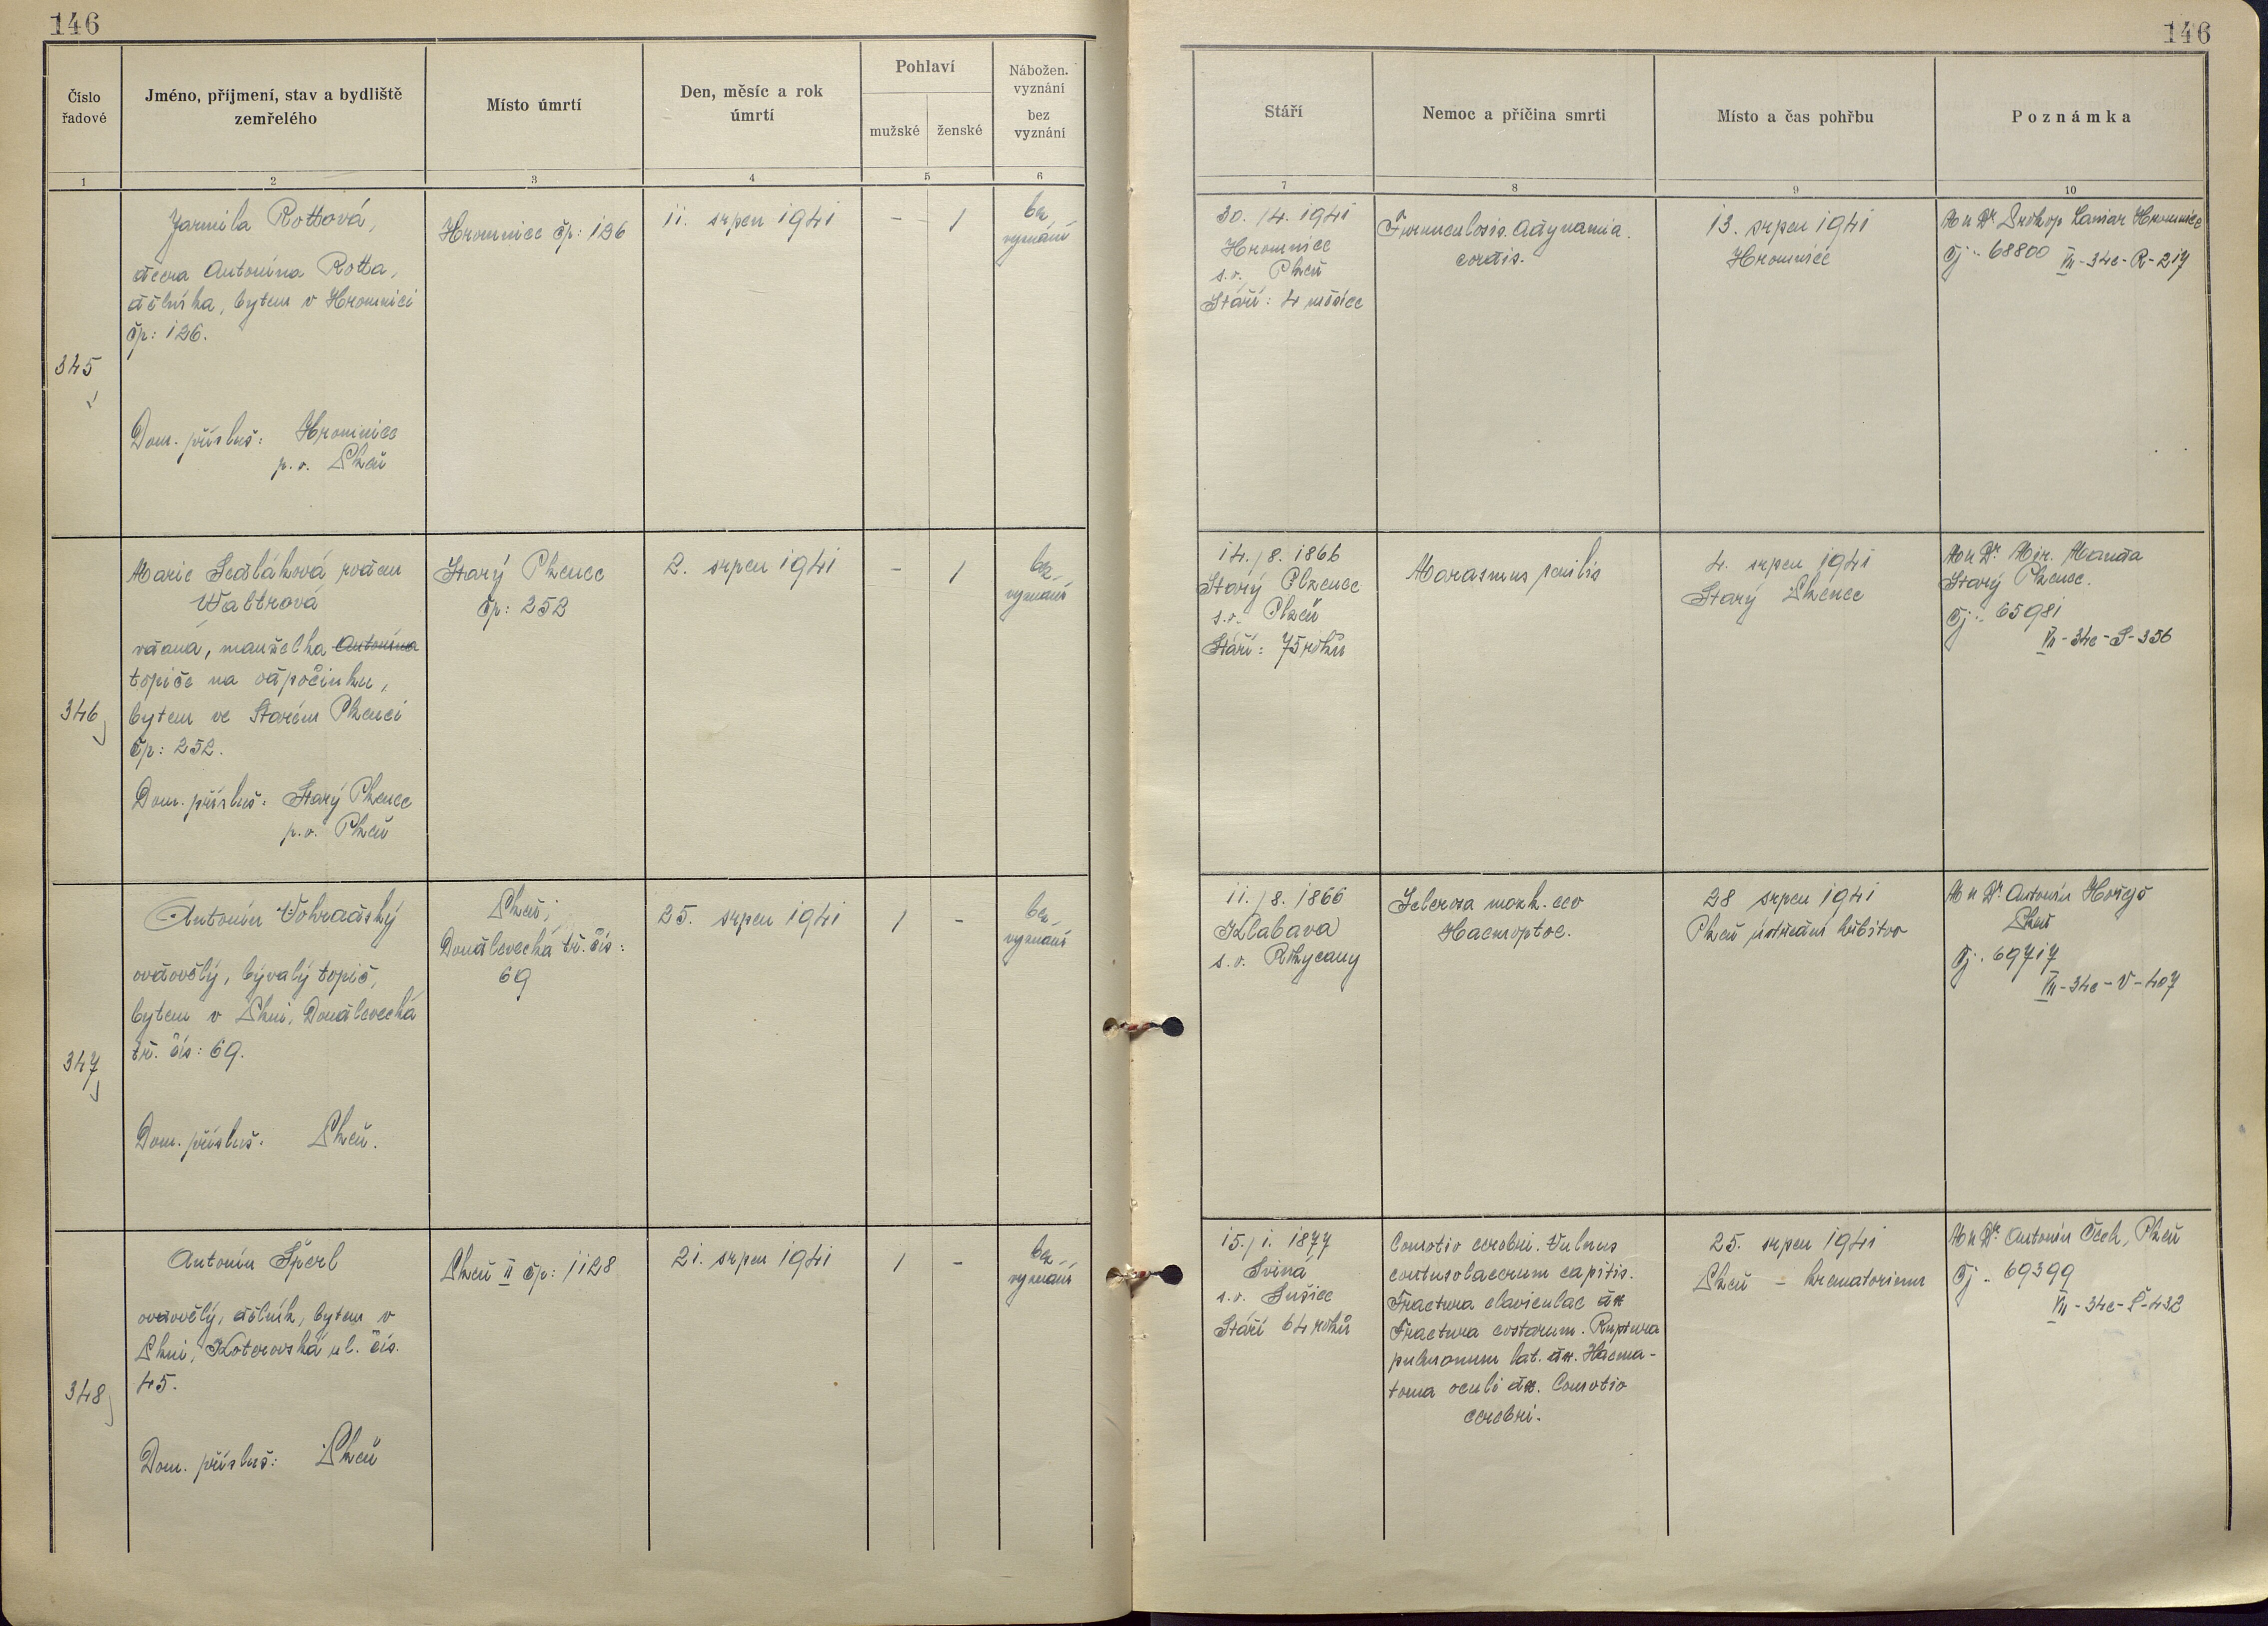 146
146
Číslo řadové
Jméno, příjmení, stav a bydliště zemřelého
Místo úmrtí
Den, měsíc a rok úmrtí
Pohlaví
mužské
ženské
Nábožen. vyznání
bez vyznání
Stáří
Nemoc a příčina smrti
Místo a čas pohřbu
Poznámka
1
2
3
4
5
6
7
8
9
10
345
Jarmila Rottová,
dcera Antonína Rotta,
dělníka, bytem v Hromnici
čp: 126.
Dom. přísluš: Hromnice
p.o. Plzeň
Hromnice čp: 126
11. srpen 1941
-
1
bez
vyznání
30./4. 1941
Hromnice
s.o. Plzeň
Stáří: 4 měsíce
Furunculosis. Adynamia
cordis.
13. srpen 1941
Hromnice
MUDr Prokop Hromnice
Čj: 68800 VII-34c-R-217
346
Marie Sedláková rodem
Waltrová
vdaná, manželka Antonína
topiče na odpočinku,
bytem ve Starém Plzenci
čp: 252.
Dom. přísluš: Starý Plzenec
p.o. Plzeň
Starý Plzenec
čp: 252
2. srpen 1941
-
1
bez
vyznání
14./8. 1866
Starý Plzenec
s.o. Plzeň
Stáří: 75 roků
Marasmus senilis
4. srpen 1941
Starý Plzenec
MUDr Mir.
Starý Plzenec.
Čj: 65981
VII-34c-S-356
347
Antonín Vohradský
ovdovělý, bývalý topič,
bytem v Plzni, Doudlevecká
tř. čís: 69.
Dom. přísluš: Plzeň.
Plzeň;
Doudlevecká tř. čís:
69
25. srpen 1941
1
-
bez
vyznání
11./8. 1866
Klabava
s.o. Rokycany
Sclerosa mozk. cev
Haemoptoe.
28 srpen 1941
Plzeň ústřední hřbitov
MUDr Antonín Hořejš
Plzeň
Čj: 69717
VII-34c-V-407
348
Antonín Šperl
ovdovělý, dělník, bytem v
Plzni, Koterovská ul. čís.
45.
Dom. přísluš: Plzeň
Plzeň II čp: 1128
21. srpen 1941
1
-
bez
vyznání
15./1. 1877
Sviná
s.o. Sušice
Stáří 64 roků
Comotio cerebri. Vulnus
contusolacerum capitis.
Fractura claviculae dx
Fractura costarum. Ruptura
pulmonum lat. dx. Haema-
toma oculi dx. Comotio
cerebri.
25. srpen 1941
Plzeň - krematorium
MUDr Antonín Čech, Plzeň
Čj: 69399
VII-34c-Š-432